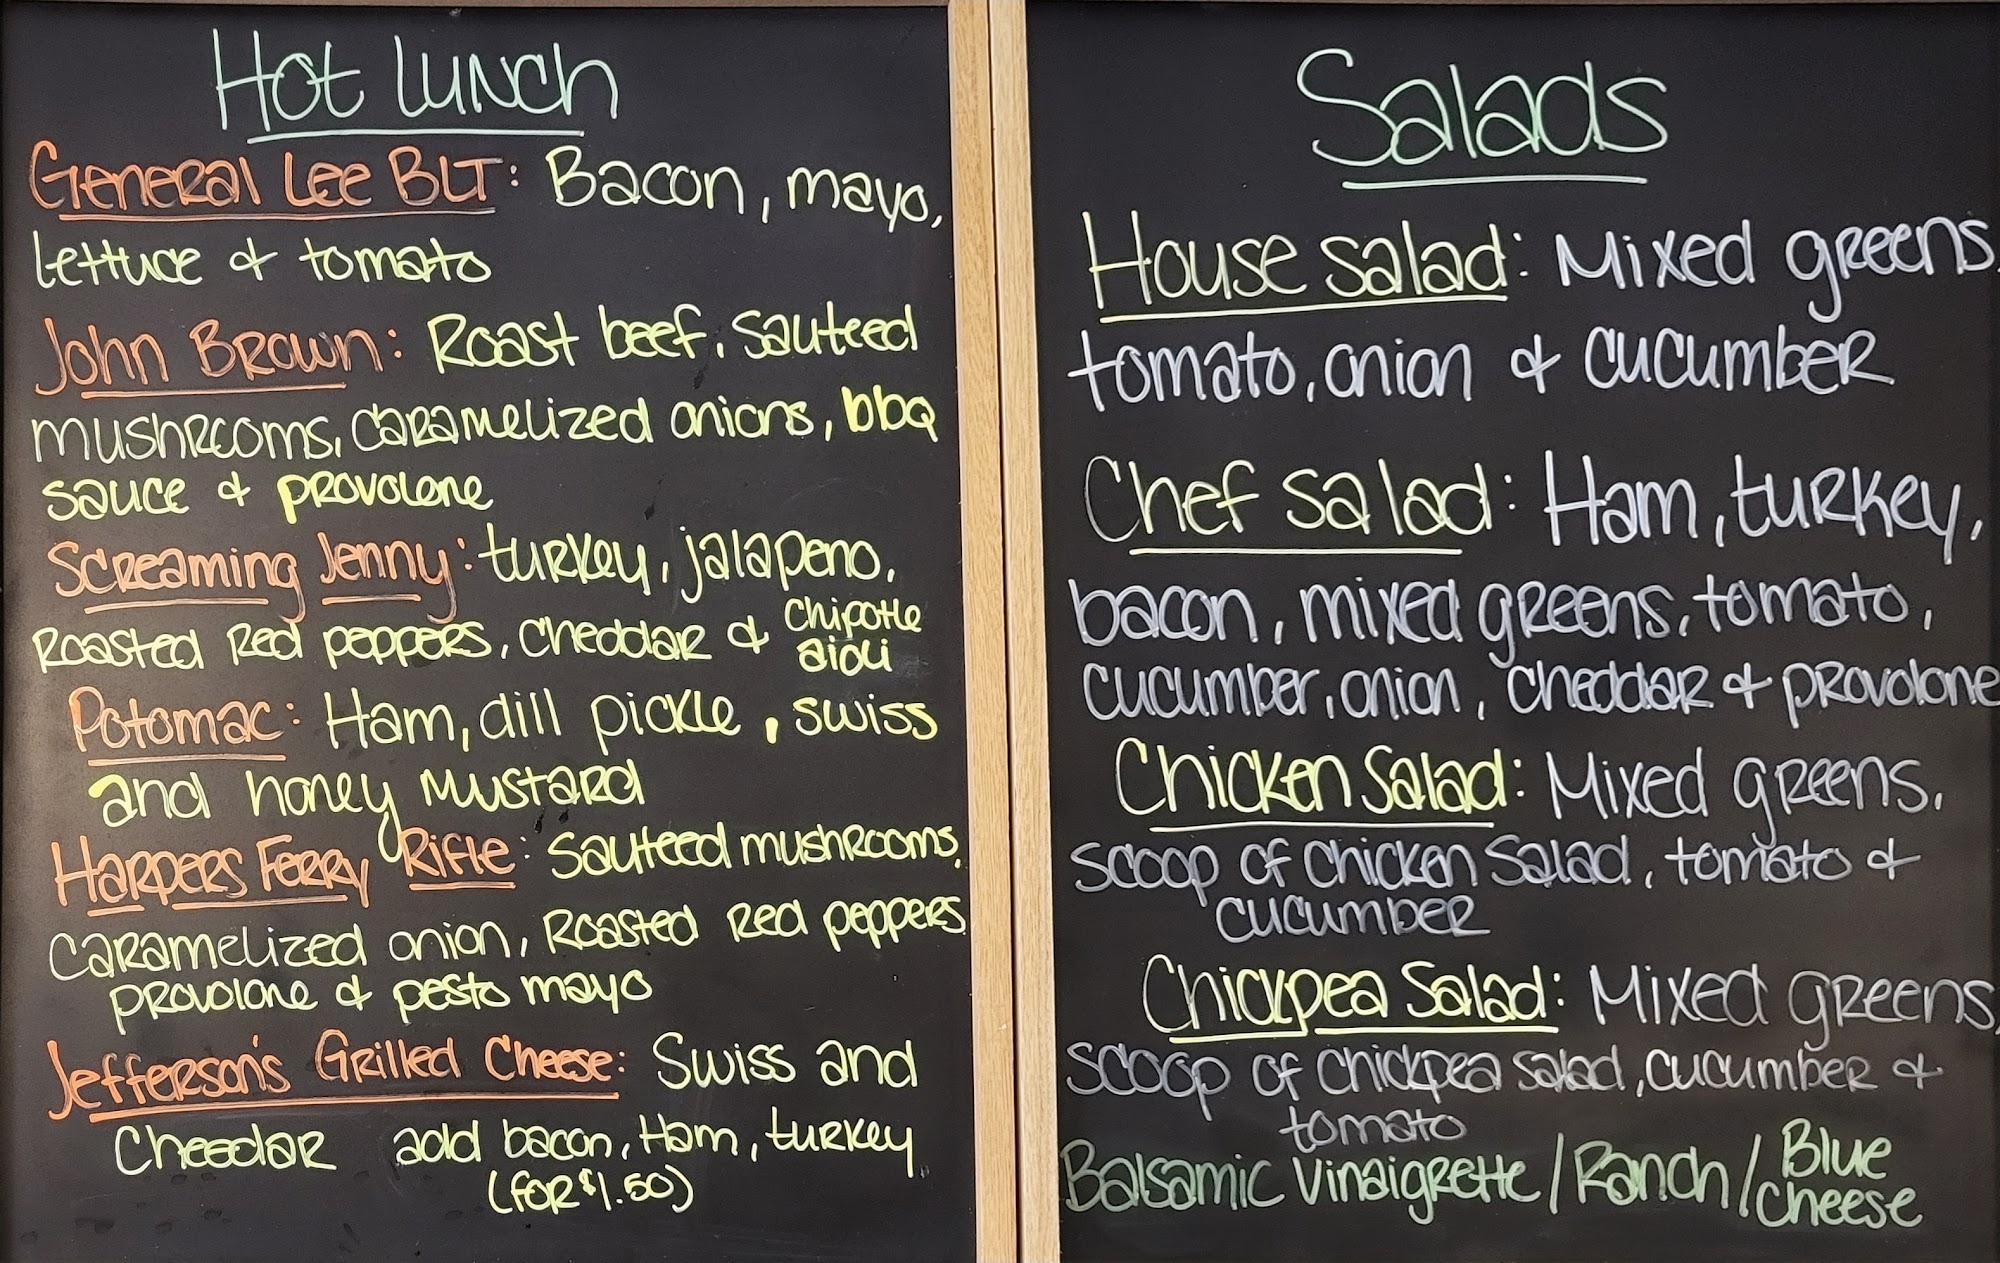 Hot Lunch
General Lee BLT: Bacon, mayo,
lettuce & tomato
John Brown: Roast beef, sauteed
mushrooms, caramelized onions, bbq
sauce & provolone
Screaming Jenny: turkey, jalapeno,
Roasted Red peppers, cheddar & chipotle
aioli
Potomac: Ham, dill pickle, swiss
and honey mustard
Harpers Ferry Rifle: Sauteed mushrooms,
caramelized onion, Roasted Red peppers
provolone & pesto mayo
Jefferson's Grilled Cheese: Swiss and
Cheedar add bacon, Ham, turkey
(for $1.50)
Salads
House salad: Mixed greens,
tomato, onion & cucumber
Chef salad: Ham, turkey,
bacon, mixed greens, tomato,
cucumber, onion, cheddar & provolone
Chicken Salad: Mixed greens,
scoop of chicken Salad, tomato &
cucumber
Chickpea Salad: Mixed greens,
scoop of chickpea salad, cucumber &
tomato
Balsamic Vinaigrette / Ranch / Blue
Cheese